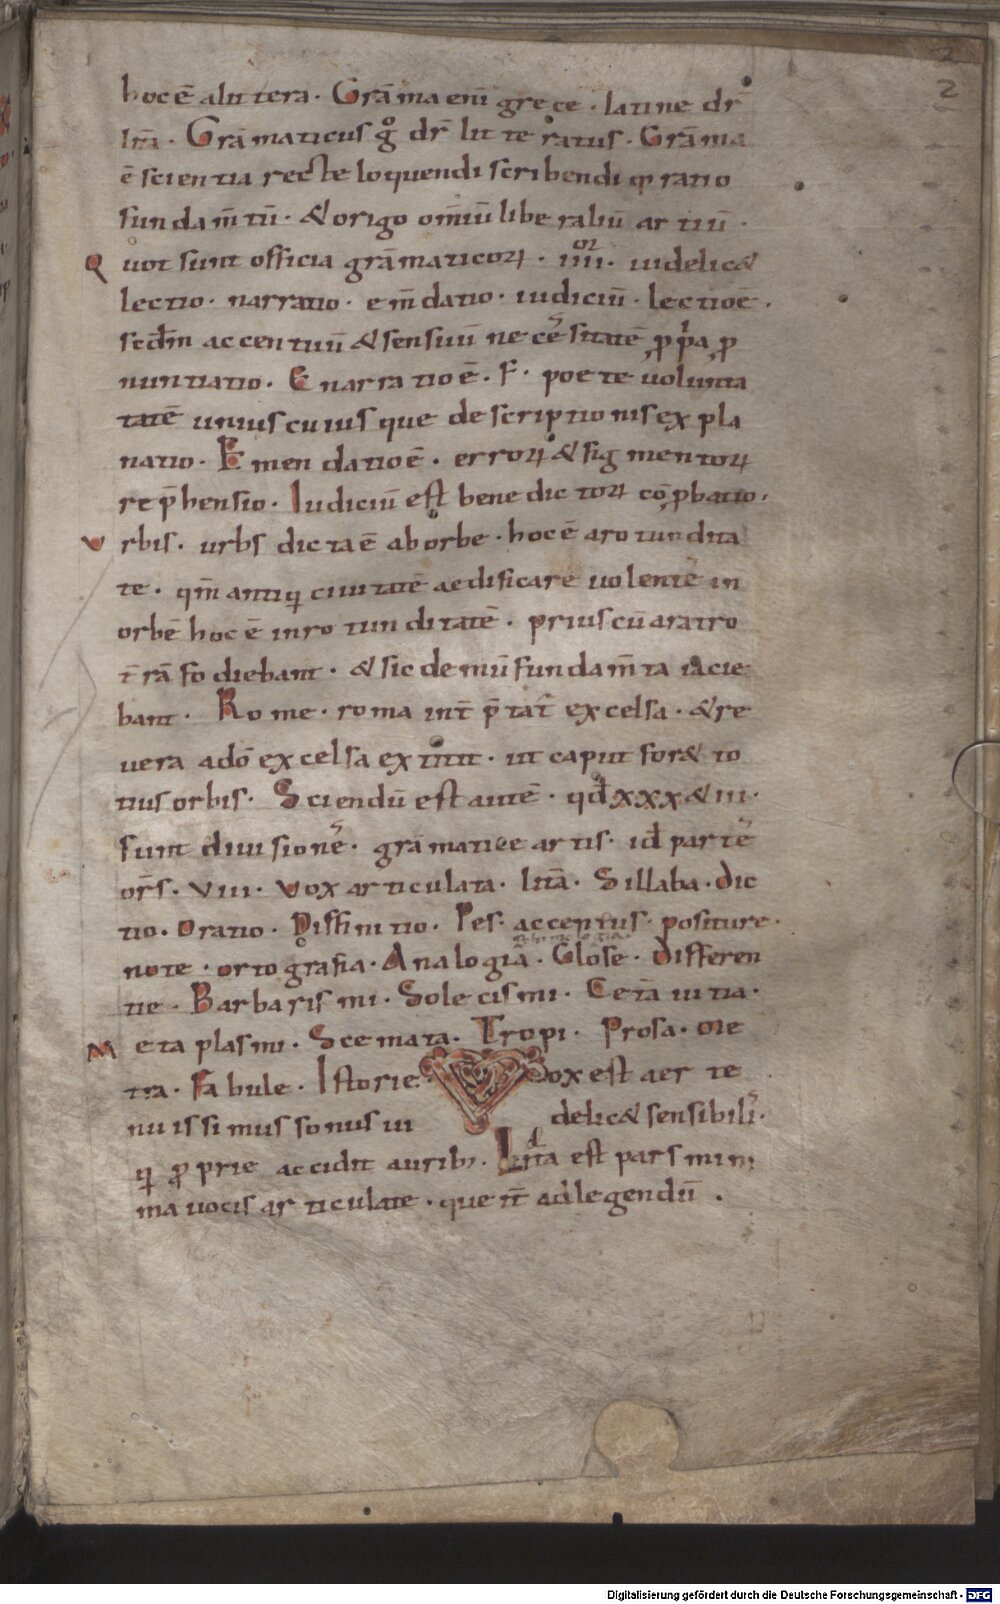 2
2
hoc ē a littera. Grāma eni grece. latine dr̄
lit̄a. Grāmaticus gͦ dr̄ litteratus. Grāma
ē scientia recte loquendi scribendi qͥ ratio
fundam̄tū. & origo om̄iū liberaliū artiū.
Quot sunt officia grāmaticoꝝ. iiiiᵒʳ. uidelic&
lectio. narratio. em̄datio. iudiciū. lectio ē.
scd̄m accentuū & sensuū necēsitatē ꝓpͥa ꝓ
nuntiatio. Enarratio ē. F. poete uolunta
tatē uniuscuiusque descriptionis expla
natio. Emendatio ē. erroꝝ & figmentoꝝ
rep̄hensio. Iudiciū est bene dictoꝝ cōꝓbatio.
Vrbis. urbs dicta ē ab orbe. hoc ē a rotundita
te. qm̄ antiqͥ ciuitatē aedificare uolentē in
orbē hoc ē in rotunditatē. prius cū aratro
t̄rā fodiebant. & sic demū fundam̄ta iacie
bant. Rome. roma int̄ p̄tat̄ excelsa. & re
uera adō excelsa extitit. ut caput for& to
tius orbis. Sciendū est autē. qd̄ xxx & iii.
sunt diuisionē. grāmatice artis. id̄ partē
or̄s. viii. vox articulata. lit̄a. Sillaba. dic
tio. Oratio. Diffinitio. Pes. accentus. positure.
note. ortografia. Analogia. Glose. differen
tie. Barbarismi. Solecismi. Cetā uitia.
Metaplasmi. Scemata. Tropi. Prosa. Me
tra. Fabule. Istorie. Vox est aer te
nuissimus sonus ui delic& sensibilī.
qͥ ꝓprie accidit auribꝫ. Lit̄a est pars mini
ma vocis articulate. que īt ad legendū.
Digitalisierung gefördert durch die Deutsche Forschungsgemeinschaft - DFG